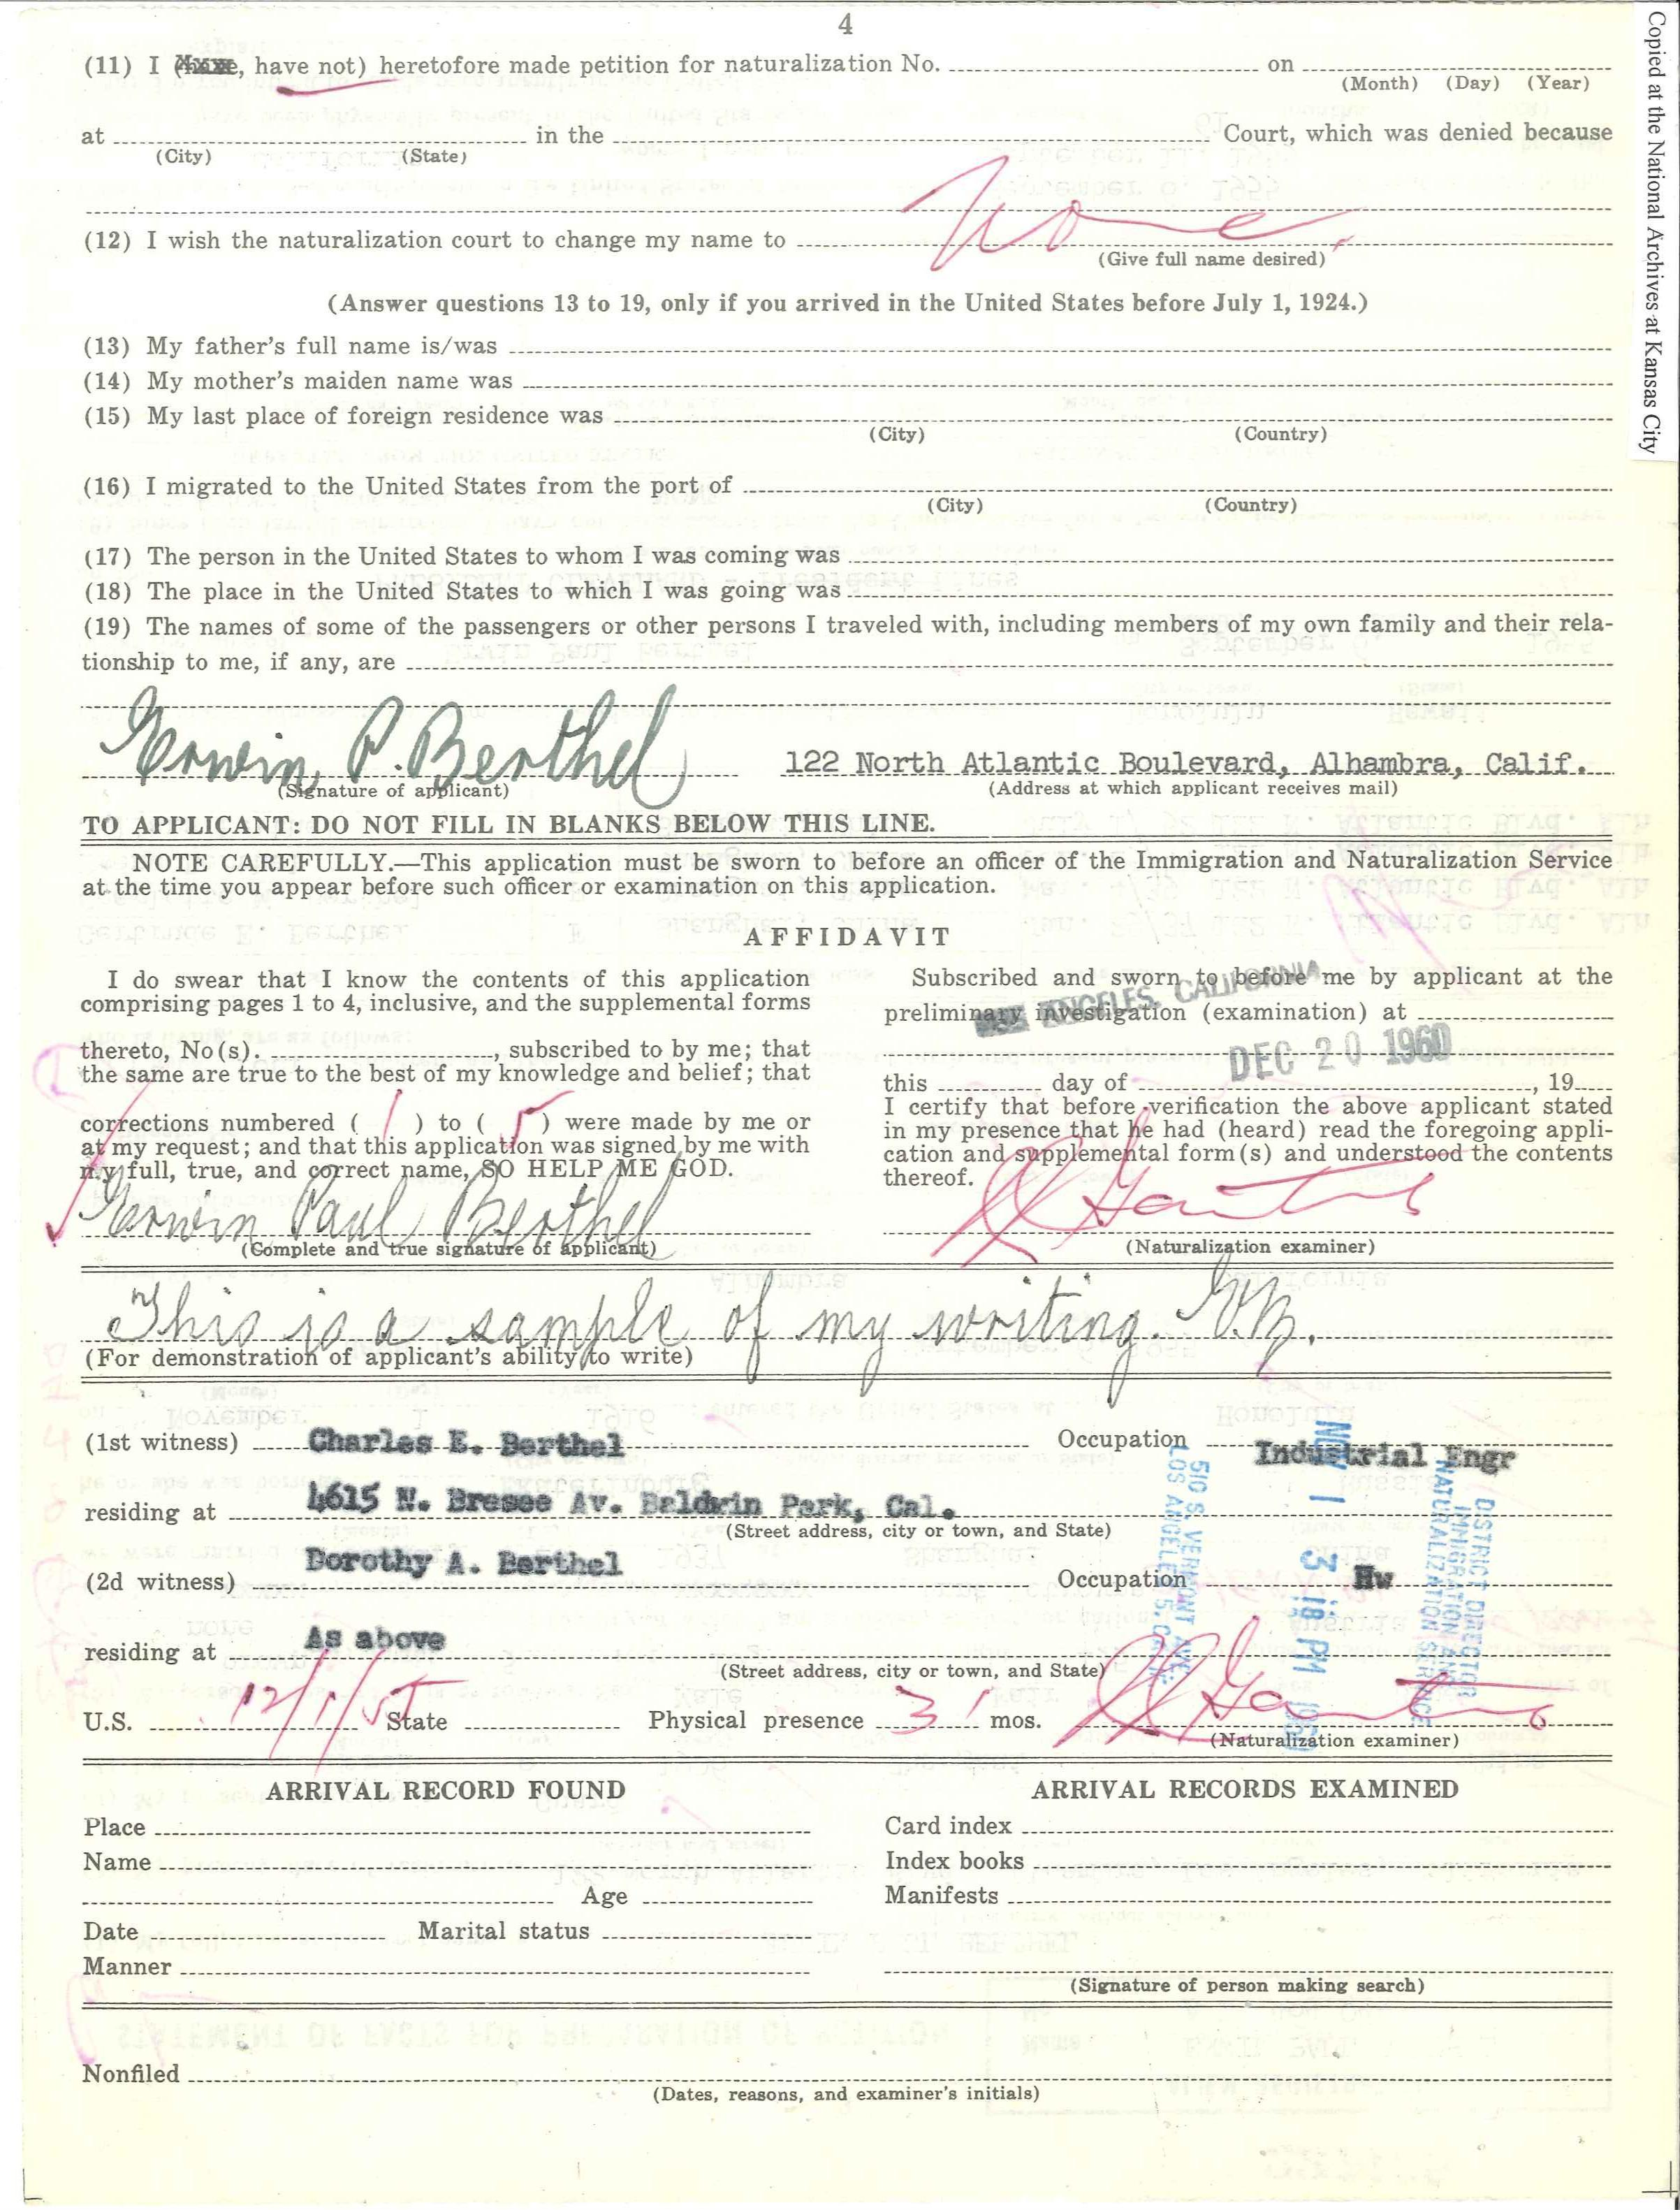 4
(11) I (have, have not) heretofore made petition for naturalization No. on
(Month) (Day) (Year)
at in the Court, which was denied because
(City) (State)
None
(12) I wish the naturalization court to change my name to
(Give full name desired)
(Answer questions 13 to 19, only if you arrived in the United States before July 1, 1924.)
(13) My father's full name is/was
(14) My mother's maiden name was
(15) My last place of foreign residence was
(City) (Country)
(16) I migrated to the United States from the port of
(City) (Country)
(17) The person in the United States to whom I was coming was
(18) The place in the United States to which I was going was
(19) The names of some of the passengers or other persons I traveled with, including members of my own family and their rela-
tionship to me, if any, are
Erwin P. Berthel 122 North Atlantic Boulevard, Alhambra, Calif.
(Signature of applicant) (Address at which applicant receives mail)
TO APPLICANT: DO NOT FILL IN BLANKS BELOW THIS LINE.
NOTE CAREFULLY.—This application must be sworn to before an officer of the Immigration and Naturalization Service
at the time you appear before such officer or examination on this application.
AFFIDAVIT
I do swear that I know the contents of this application
comprising pages 1 to 4, inclusive, and the supplemental forms
thereto, No(s). , subscribed to by me; that
the same are true to the best of my knowledge and belief; that
corrections numbered ( 1 ) to ( 5 ) were made by me or
at my request; and that this application was signed by me with
my full, true, and correct name, SO HELP ME GOD.
Erwin Paul Berthel
(Complete and true signature of applicant)
Subscribed and sworn to before me by applicant at the
preliminary investigation (examination) at
ANGELES, CALIFORNIA
DEC 20 1960
this day of , 19
I certify that before verification the above applicant stated
in my presence that he had (heard) read the foregoing appli-
cation and supplemental form(s) and understood the contents
thereof.
(Naturalization examiner)
This is a sample of my writing. E.B.
(For demonstration of applicant's ability to write)
(1st witness) Charles E. Berthel Occupation Industrial Engr
residing at 4615 N. Bresee Av. Baldwin Park, Cal.
(Street address, city or town, and State)
(2d witness) Dorothy A. Berthel Occupation Hw
residing at As above
(Street address, city or town, and State)
DISTRICT DIRECTOR
IMMIGRATION AND
NATURALIZATION SERVICE
NOV 1 3 18 PM 1960
510 S. VERMONT AVE.
LOS ANGELES 5 CALIF.
U.S. 12/1/55 State Physical presence 31 mos.
(Naturalization examiner)
ARRIVAL RECORD FOUND
Place
Name
Age
Date Marital status
Manner
ARRIVAL RECORDS EXAMINED
Card index
Index books
Manifests
(Signature of person making search)
Nonfiled
(Dates, reasons, and examiner's initials)
Copied at the National Archives at Kansas City